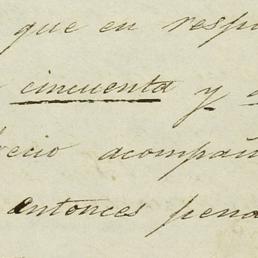 que en resp
cincuenta y
ecio acompañ
entonces pena